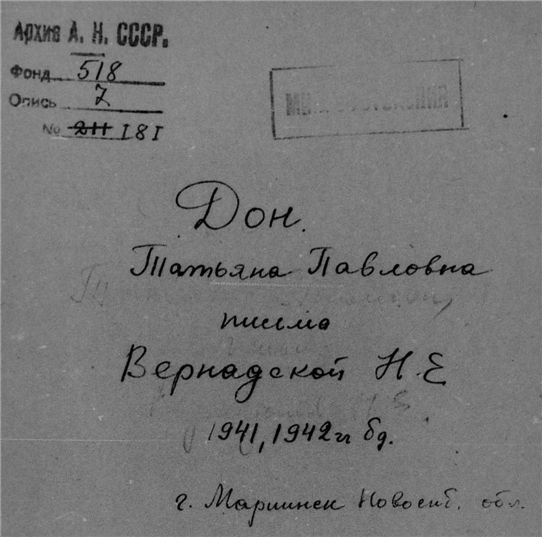 Архив А. Н. СССР.
Фонд 518
Опись 7
№ 211 181
Дон.
Татьяна Павловна
письма
Вернадской Н.Е
1941, 1942 гг бд.
г. Мариинск Новосиб. обл.